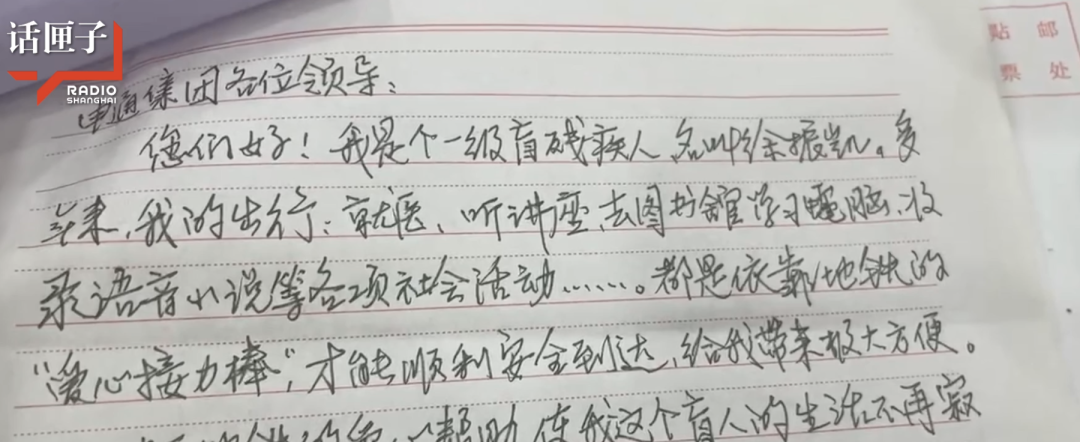 话匣子
RADIO
SHANGHAI
贴 邮
票 处
申通集团各位领导：
您们好！我是个一级盲残疾人，名叫徐振凯。多
年来，我的出行：就医、听讲座、去图书馆学习電脑、收
录语音小说等各项社会活动……。都是依靠地铁的
“爱心接力棒”，才能顺利安全到达，给我带来极大方便。
帮助，使我这个盲人的生活不再寂